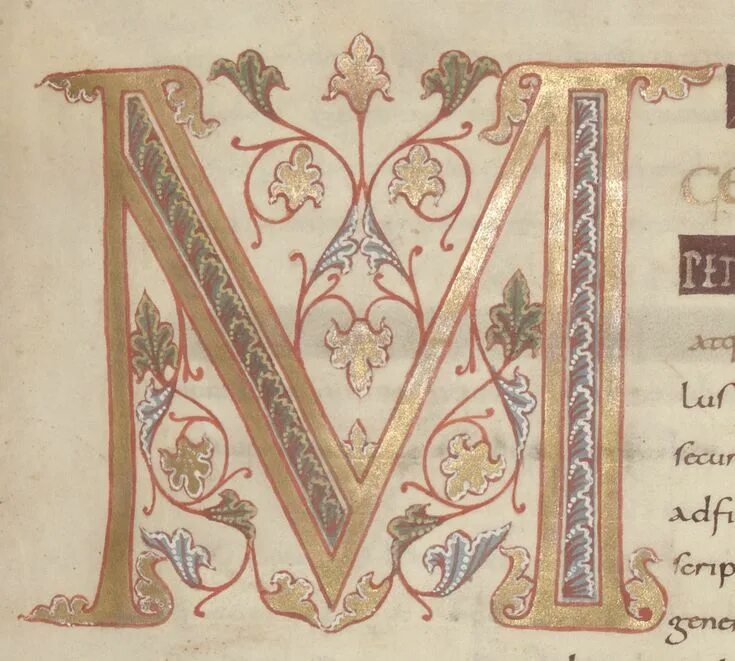 M
CE
PET
atq
lus
secun
adfi
scrip
gener